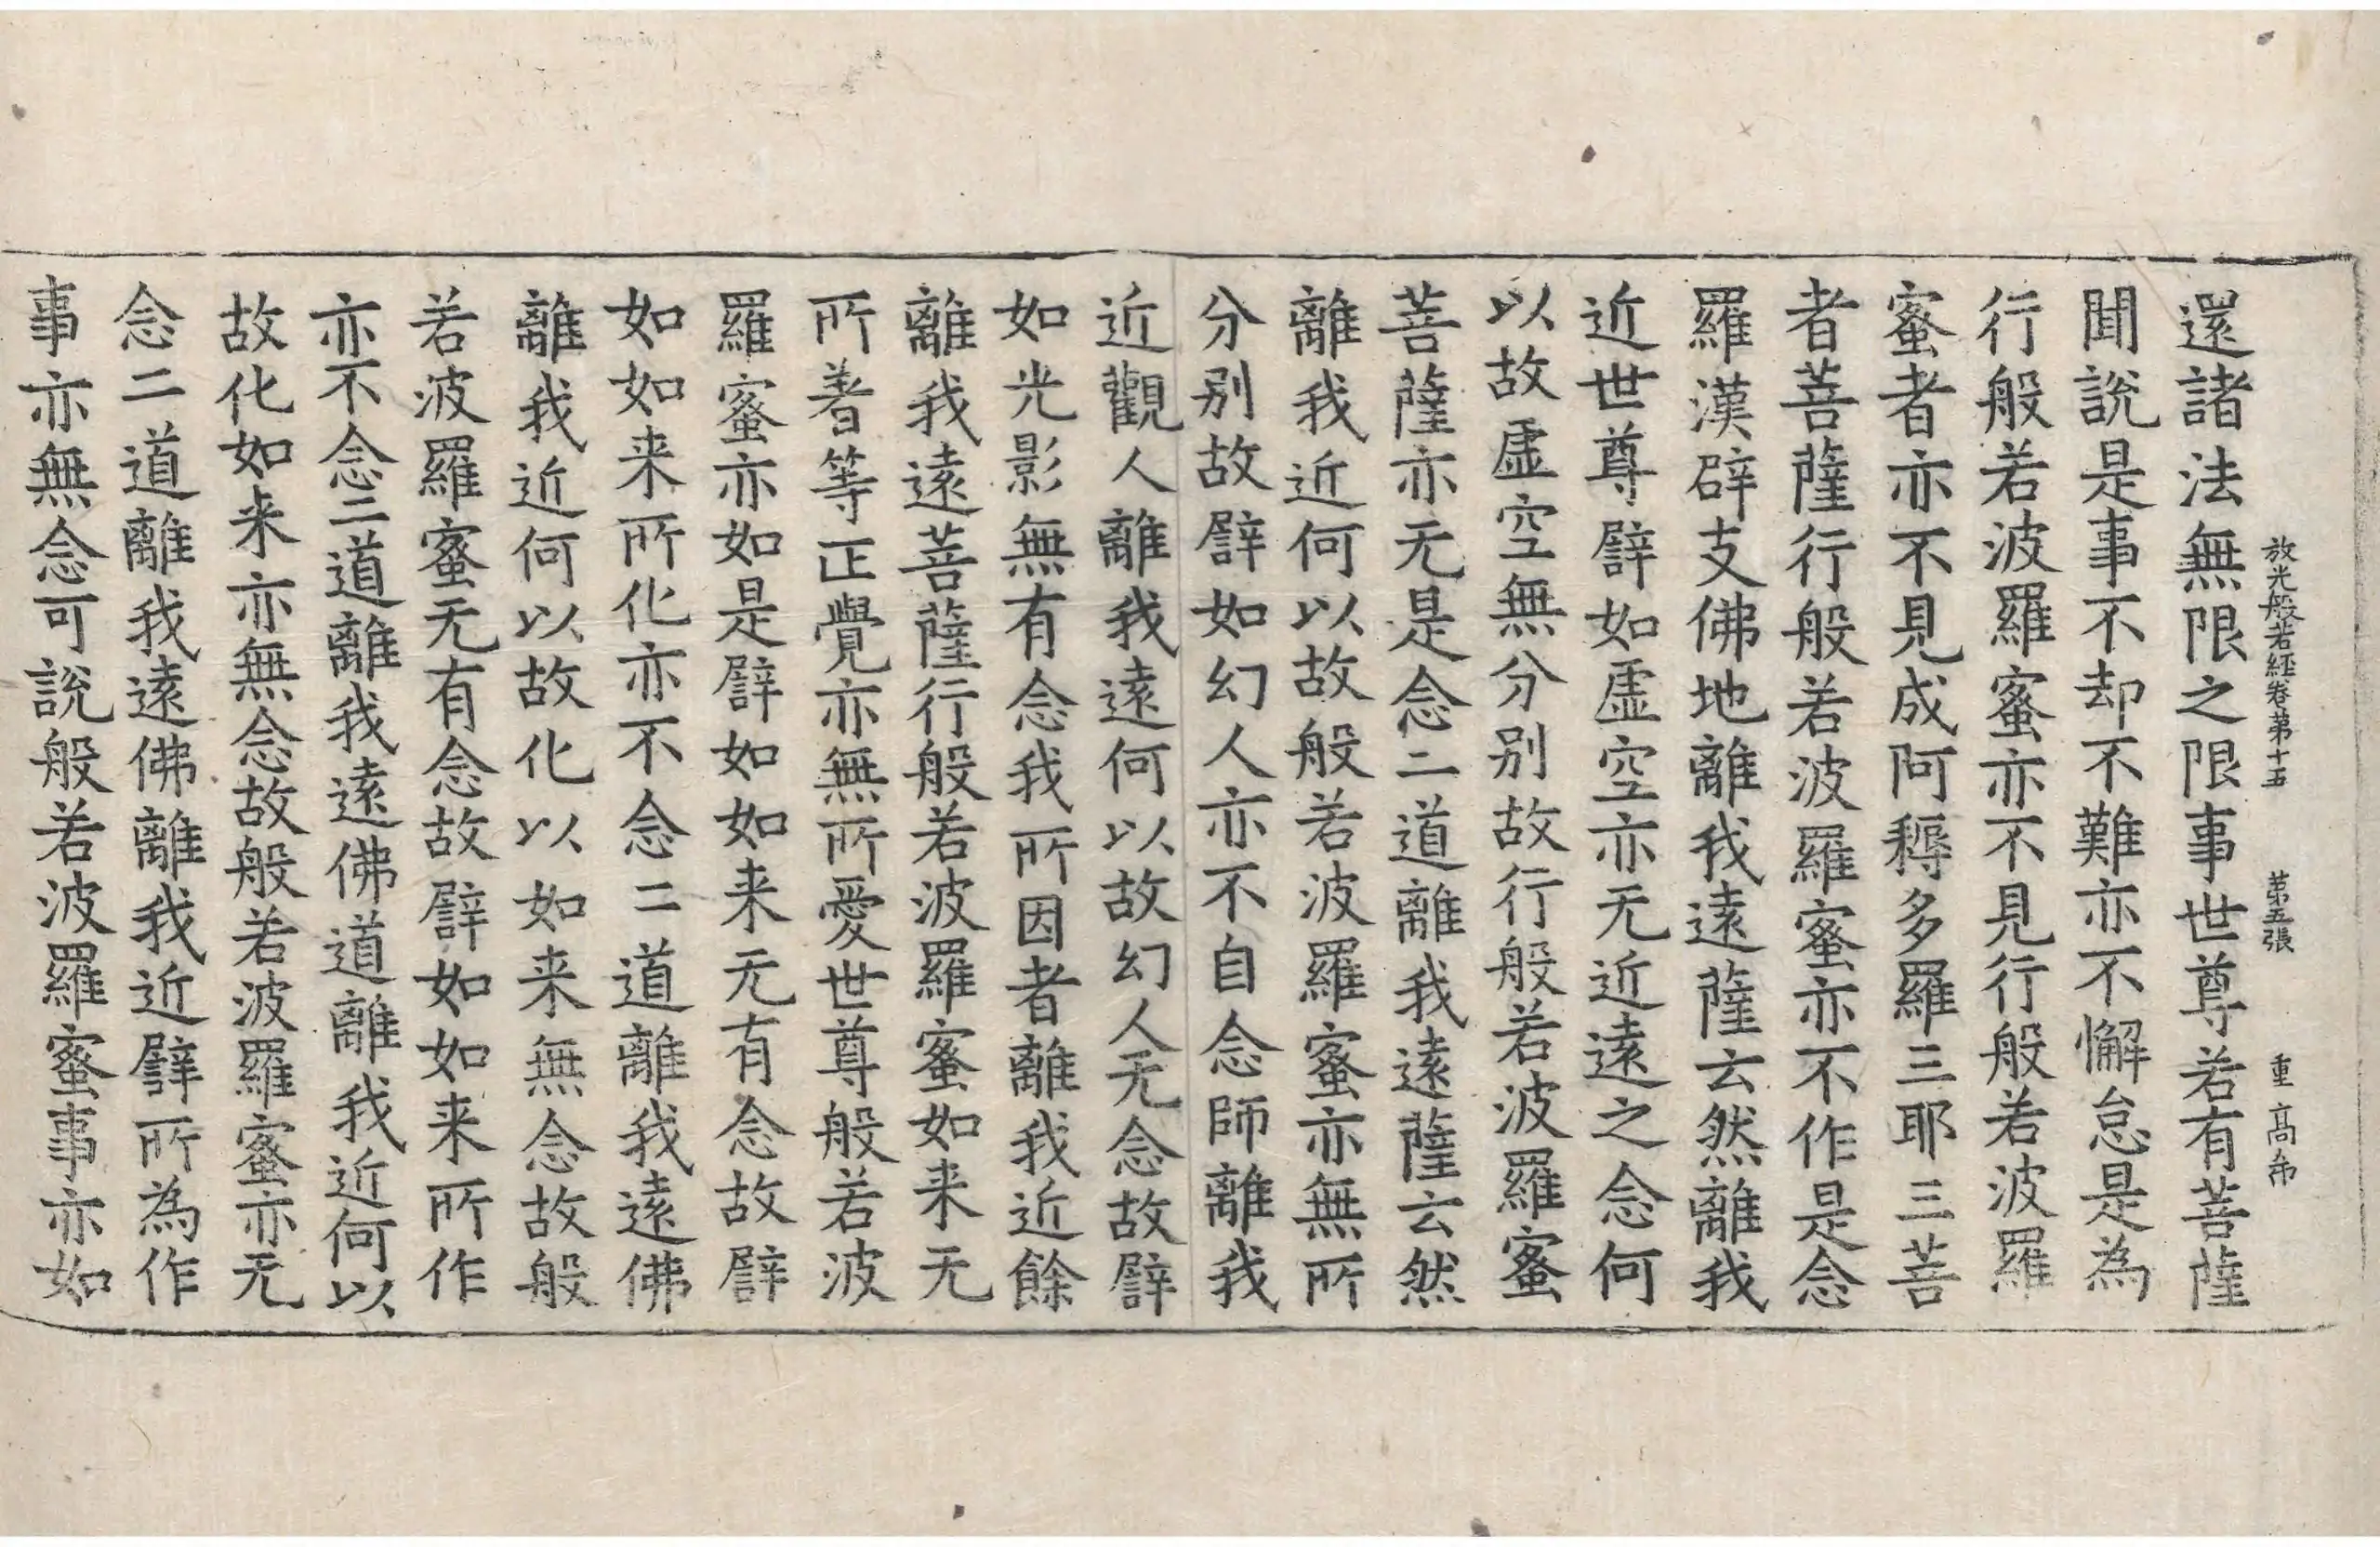 放光般若經卷第十五 第五張 重 髙
還諸法無限之限事世尊若有菩薩
聞說是事不却不難亦不懈怠是為
行般若波羅蜜亦不見行般若波羅
蜜者亦不見成阿耨多羅三耶三菩
者菩薩行般若波羅蜜亦不作是念
羅漢辟支佛地離我遠薩云然離我
近世尊譬如虛空亦无近遠之念何
以故虛空無分別故行般若波羅蜜
菩薩亦无是念二道離我遠薩云然
離我近何以故般若波羅蜜亦無所
分別故譬如幻人亦不自念師離我
近觀人離我遠何以故幻人无念故譬
如光影無有念我所因者離我近餘
離我遠菩薩行般若波羅蜜如来无
所著等正覺亦無所愛世尊般若波
羅蜜亦如是譬如如来无有念故譬
如如来所化亦不念二道離我遠佛
離我近何以故化以如来無念故般
若波羅蜜无有念故譬如如来所作
亦不念二道離我遠佛道離我近何以
故化如来亦無念故般若波羅蜜亦无
念二道離我遠佛離我近譬所為作
事亦無念可說般若波羅蜜事亦如